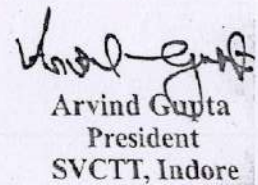 Arvind Gupta
President
SVCTT, Indore